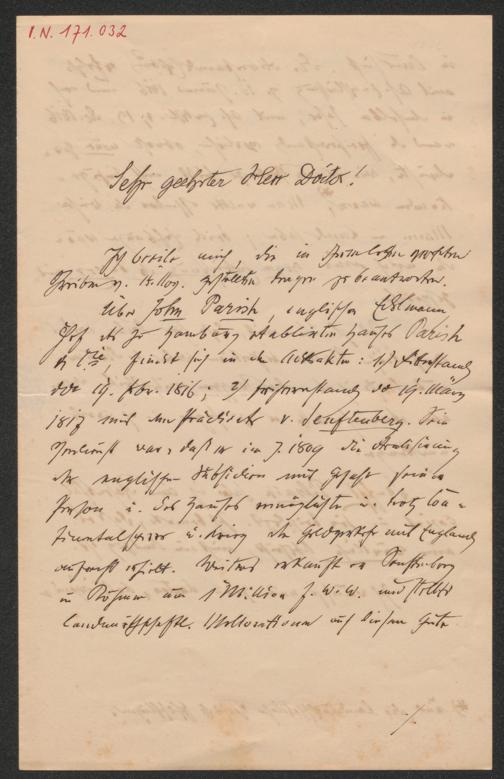 I.N. 171.032
Sehr geehrter Herr Doktor!
Ich beeile mich, die in Ihrem
Schreiben v. 18. Nov. gestellten Fragen zu beantworten.
Über John Parish, englischer Edelmann,
Chef des in Hamburg etablirten Hauses Parish
& Cie, findet sich in den Adelsakten: 1.) Ritterstand
ddo 19. Febr. 1816; 2) Freiherrnstand ddo 19. März
1817 mit dem Prädicate v. Senftenberg. Sein
Verdienst war, daß er im J. 1809 die Realisirung
der englischen Subsidien mit Gefahr seiner
Person u. des Hauses ermöglichte u. trotz Con-
tinentalsperre u. Krieg den Geldverkehr mit England
aufrecht erhielt. Weiters erkaufte er Senftenberg
in Böhmen um 1 Million f. W. W. und
landwirthschaftl. Meliorationen auf diesem Gute